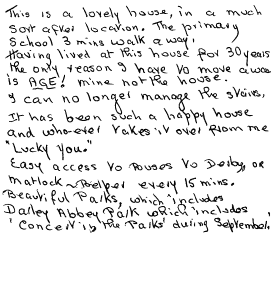 This is a lovely house, in a much
sort after location. The primary
School 3 mins walk away.
Having lived at this house for 30 years
the only reason I have to move away
is AGE! mine not the house.
I can no longer manage the stairs,
It has been such a happy house
and who-ever takes it over from me
"Lucky you."
Easy access to Buses to Derby, or
Matlock ~ Belper every 15 mins.
Beautiful Parks, which includes
Darley Abbey Park which includes
'Concert in the Parks' during September.